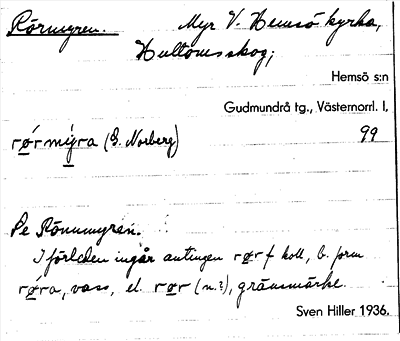 Rörmyren. Myr V. Hemsö kyrka,
Hultomsskog;
Hemsö s:n
Gudmundrå tg., Västernorrl. l.
99
rø̀rmýra (G. Norberg)
Pe Rönnmyren.
I förleden ingår antingen rør f koll, b. form
røra, vass, el. rør (n.?), gränsmärke.
Sven Hiller 1936.